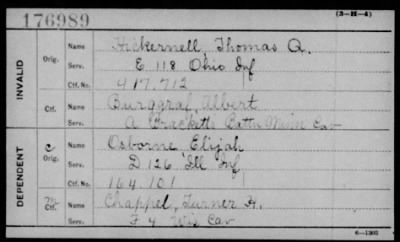 176989
(3-H-4)
INVALID
Orig. Name Hickernell, Thomas Q.
Serv. E 118 Ohio Inf
Ctf. No. 917.712
Ctf. Name Burggraf, Albert
Serv. A Bracketts Battn Minn Cav
DEPENDENT
C Orig. Name Osborne, Elijah
Serv. D 126 Ill Inf
Ctf. No. 164.101
Ctf. Name Chappel, Turner H.
Serv. F 4 Wis Cav
6-1302